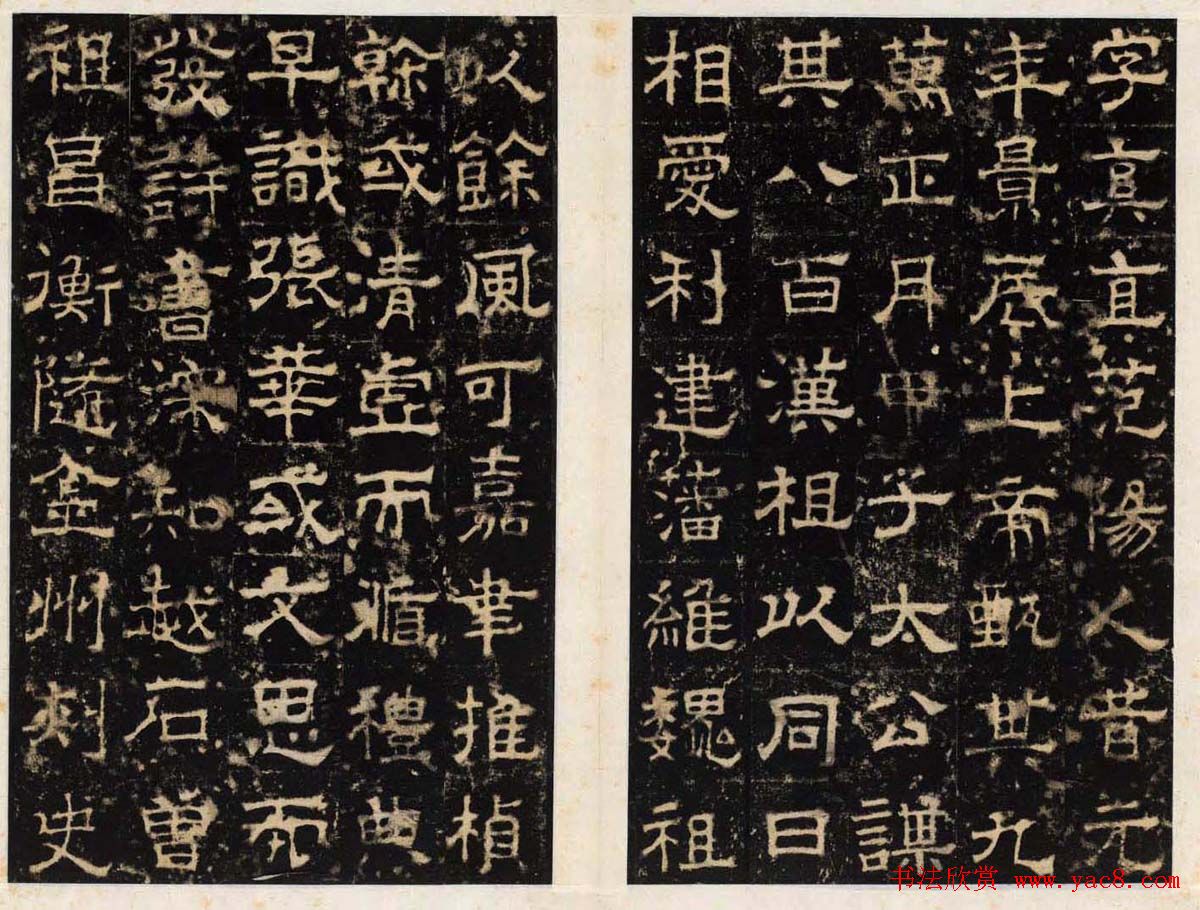 字真直范陽人昔元
年景辰上帝甄其九
萬正月甲子太公謀
其八百漢祖以同日
相愛利建藩維魏祖
以餘風可嘉聿推楨
幹或清虛而循禮典
早識張華或文思而
發詩書深知越石曾
祖昌衡隨金州刺史
书法欣赏 www.yac8.com